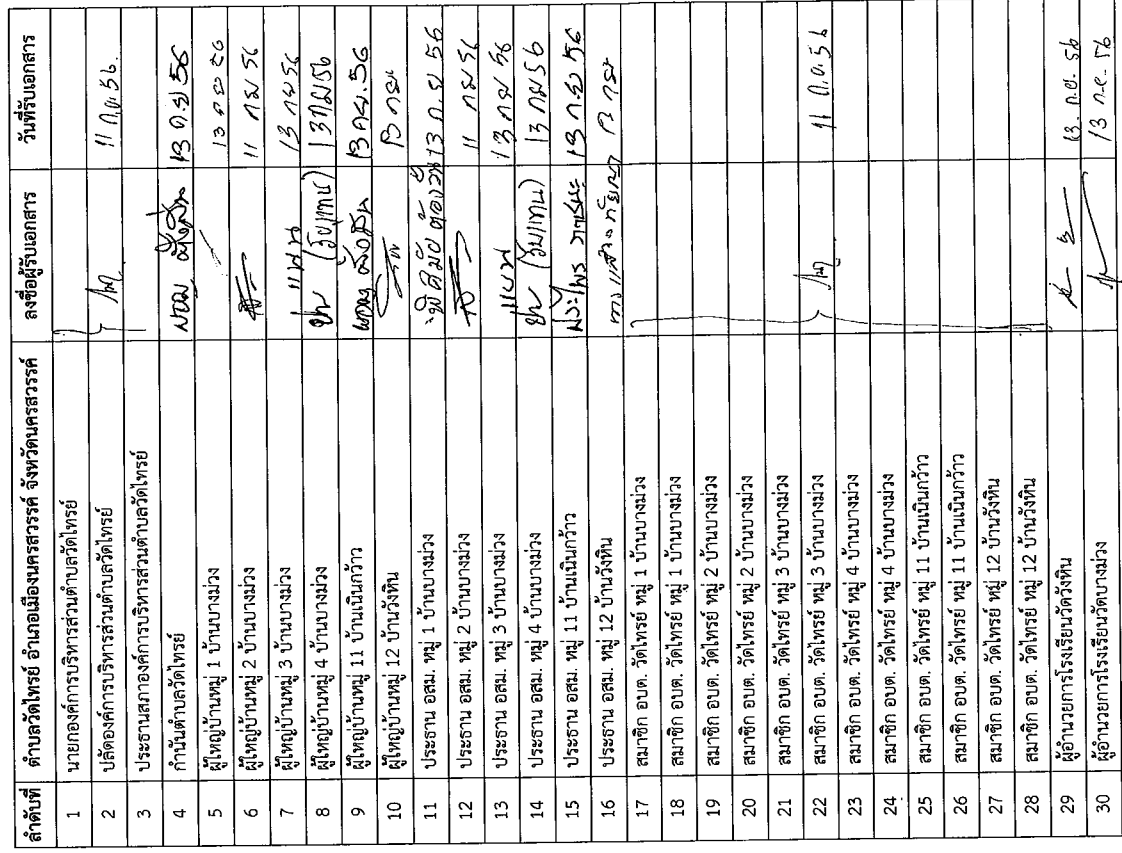 ลำดับที่ ตำบลวัดไทรย์ อำเภอเมืองนครสวรรค์ จังหวัดนครสวรรค์ ลงชื่อผู้รับเอกสาร วันที่รับเอกสาร
1 นายกองค์การบริหารส่วนตำบลวัดไทรย์
2 ปลัดองค์การบริหารส่วนตำบลวัดไทรย์ 11 ก.ย. 56.
3 ประธานสภาองค์การบริหารส่วนตำบลวัดไทรย์
4 กำนันตำบลวัดไทรย์ 13 ก.ย 56
5 ผู้ใหญ่บ้านหมู่ 1 บ้านบางม่วง 13 กย 56
6 ผู้ใหญ่บ้านหมู่ 2 บ้านบางม่วง 11 กย 56
7 ผู้ใหญ่บ้านหมู่ 3 บ้านบางม่วง 13 กย 56
8 ผู้ใหญ่บ้านหมู่ 4 บ้านบางม่วง (รับแทน) 13 กย 56
9 ผู้ใหญ่บ้านหมู่ 11 บ้านเนินกว้าว 13 กย. 56
10 ผู้ใหญ่บ้านหมู่ 12 บ้านวังหิน 13 กย
11 ประธาน อสม. หมู่ 1 บ้านบางม่วง 13 ก.ย 56
12 ประธาน อสม. หมู่ 2 บ้านบางม่วง 11 กย 56
13 ประธาน อสม. หมู่ 3 บ้านบางม่วง 13 กย 56
14 ประธาน อสม. หมู่ 4 บ้านบางม่วง (รับแทน) 13 กย 56
15 ประธาน อสม. หมู่ 11 บ้านเนินกว้าว 13 ก.ย 56
16 ประธาน อสม. หมู่ 12 บ้านวังหิน
17 สมาชิก อบต. วัดไทรย์ หมู่ 1 บ้านบางม่วง
18 สมาชิก อบต. วัดไทรย์ หมู่ 1 บ้านบางม่วง
19 สมาชิก อบต. วัดไทรย์ หมู่ 2 บ้านบางม่วง
20 สมาชิก อบต. วัดไทรย์ หมู่ 2 บ้านบางม่วง
21 สมาชิก อบต. วัดไทรย์ หมู่ 3 บ้านบางม่วง
22 สมาชิก อบต. วัดไทรย์ หมู่ 3 บ้านบางม่วง 11 ก.ย. 56
23 สมาชิก อบต. วัดไทรย์ หมู่ 4 บ้านบางม่วง
24 สมาชิก อบต. วัดไทรย์ หมู่ 4 บ้านบางม่วง
25 สมาชิก อบต. วัดไทรย์ หมู่ 11 บ้านเนินกว้าว
26 สมาชิก อบต. วัดไทรย์ หมู่ 11 บ้านเนินกว้าว
27 สมาชิก อบต. วัดไทรย์ หมู่ 12 บ้านวังหิน
28 สมาชิก อบต. วัดไทรย์ หมู่ 12 บ้านวังหิน
29 ผู้อำนวยการโรงเรียนวัดวังหิน 13. ก.ย. 56
30 ผู้อำนวยการโรงเรียนวัดบางม่วง 13 ก.ย. 56